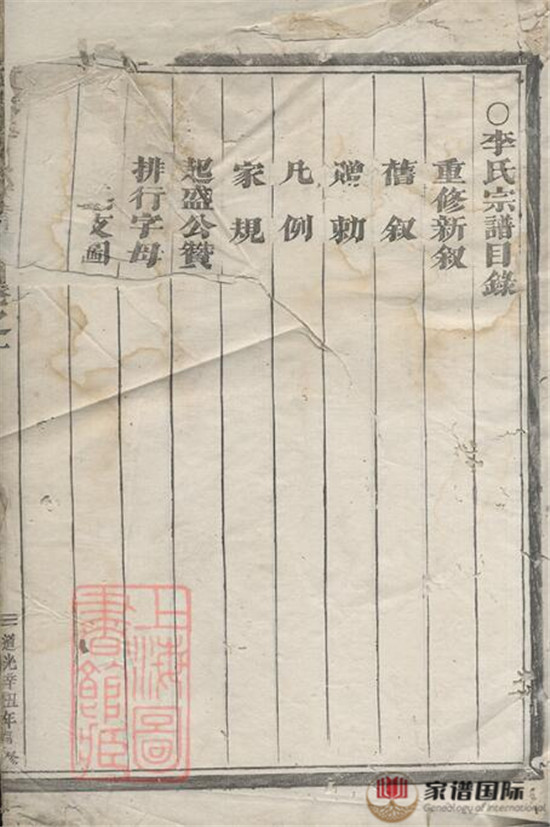 ○李氏宗譜目錄
重修新叙
舊叙
贈勅
凡例
家規
起盛公贊
排行字母
支圖
卷之一
道光辛丑年
上海圖
書館
家谱国际
Genealogy of International